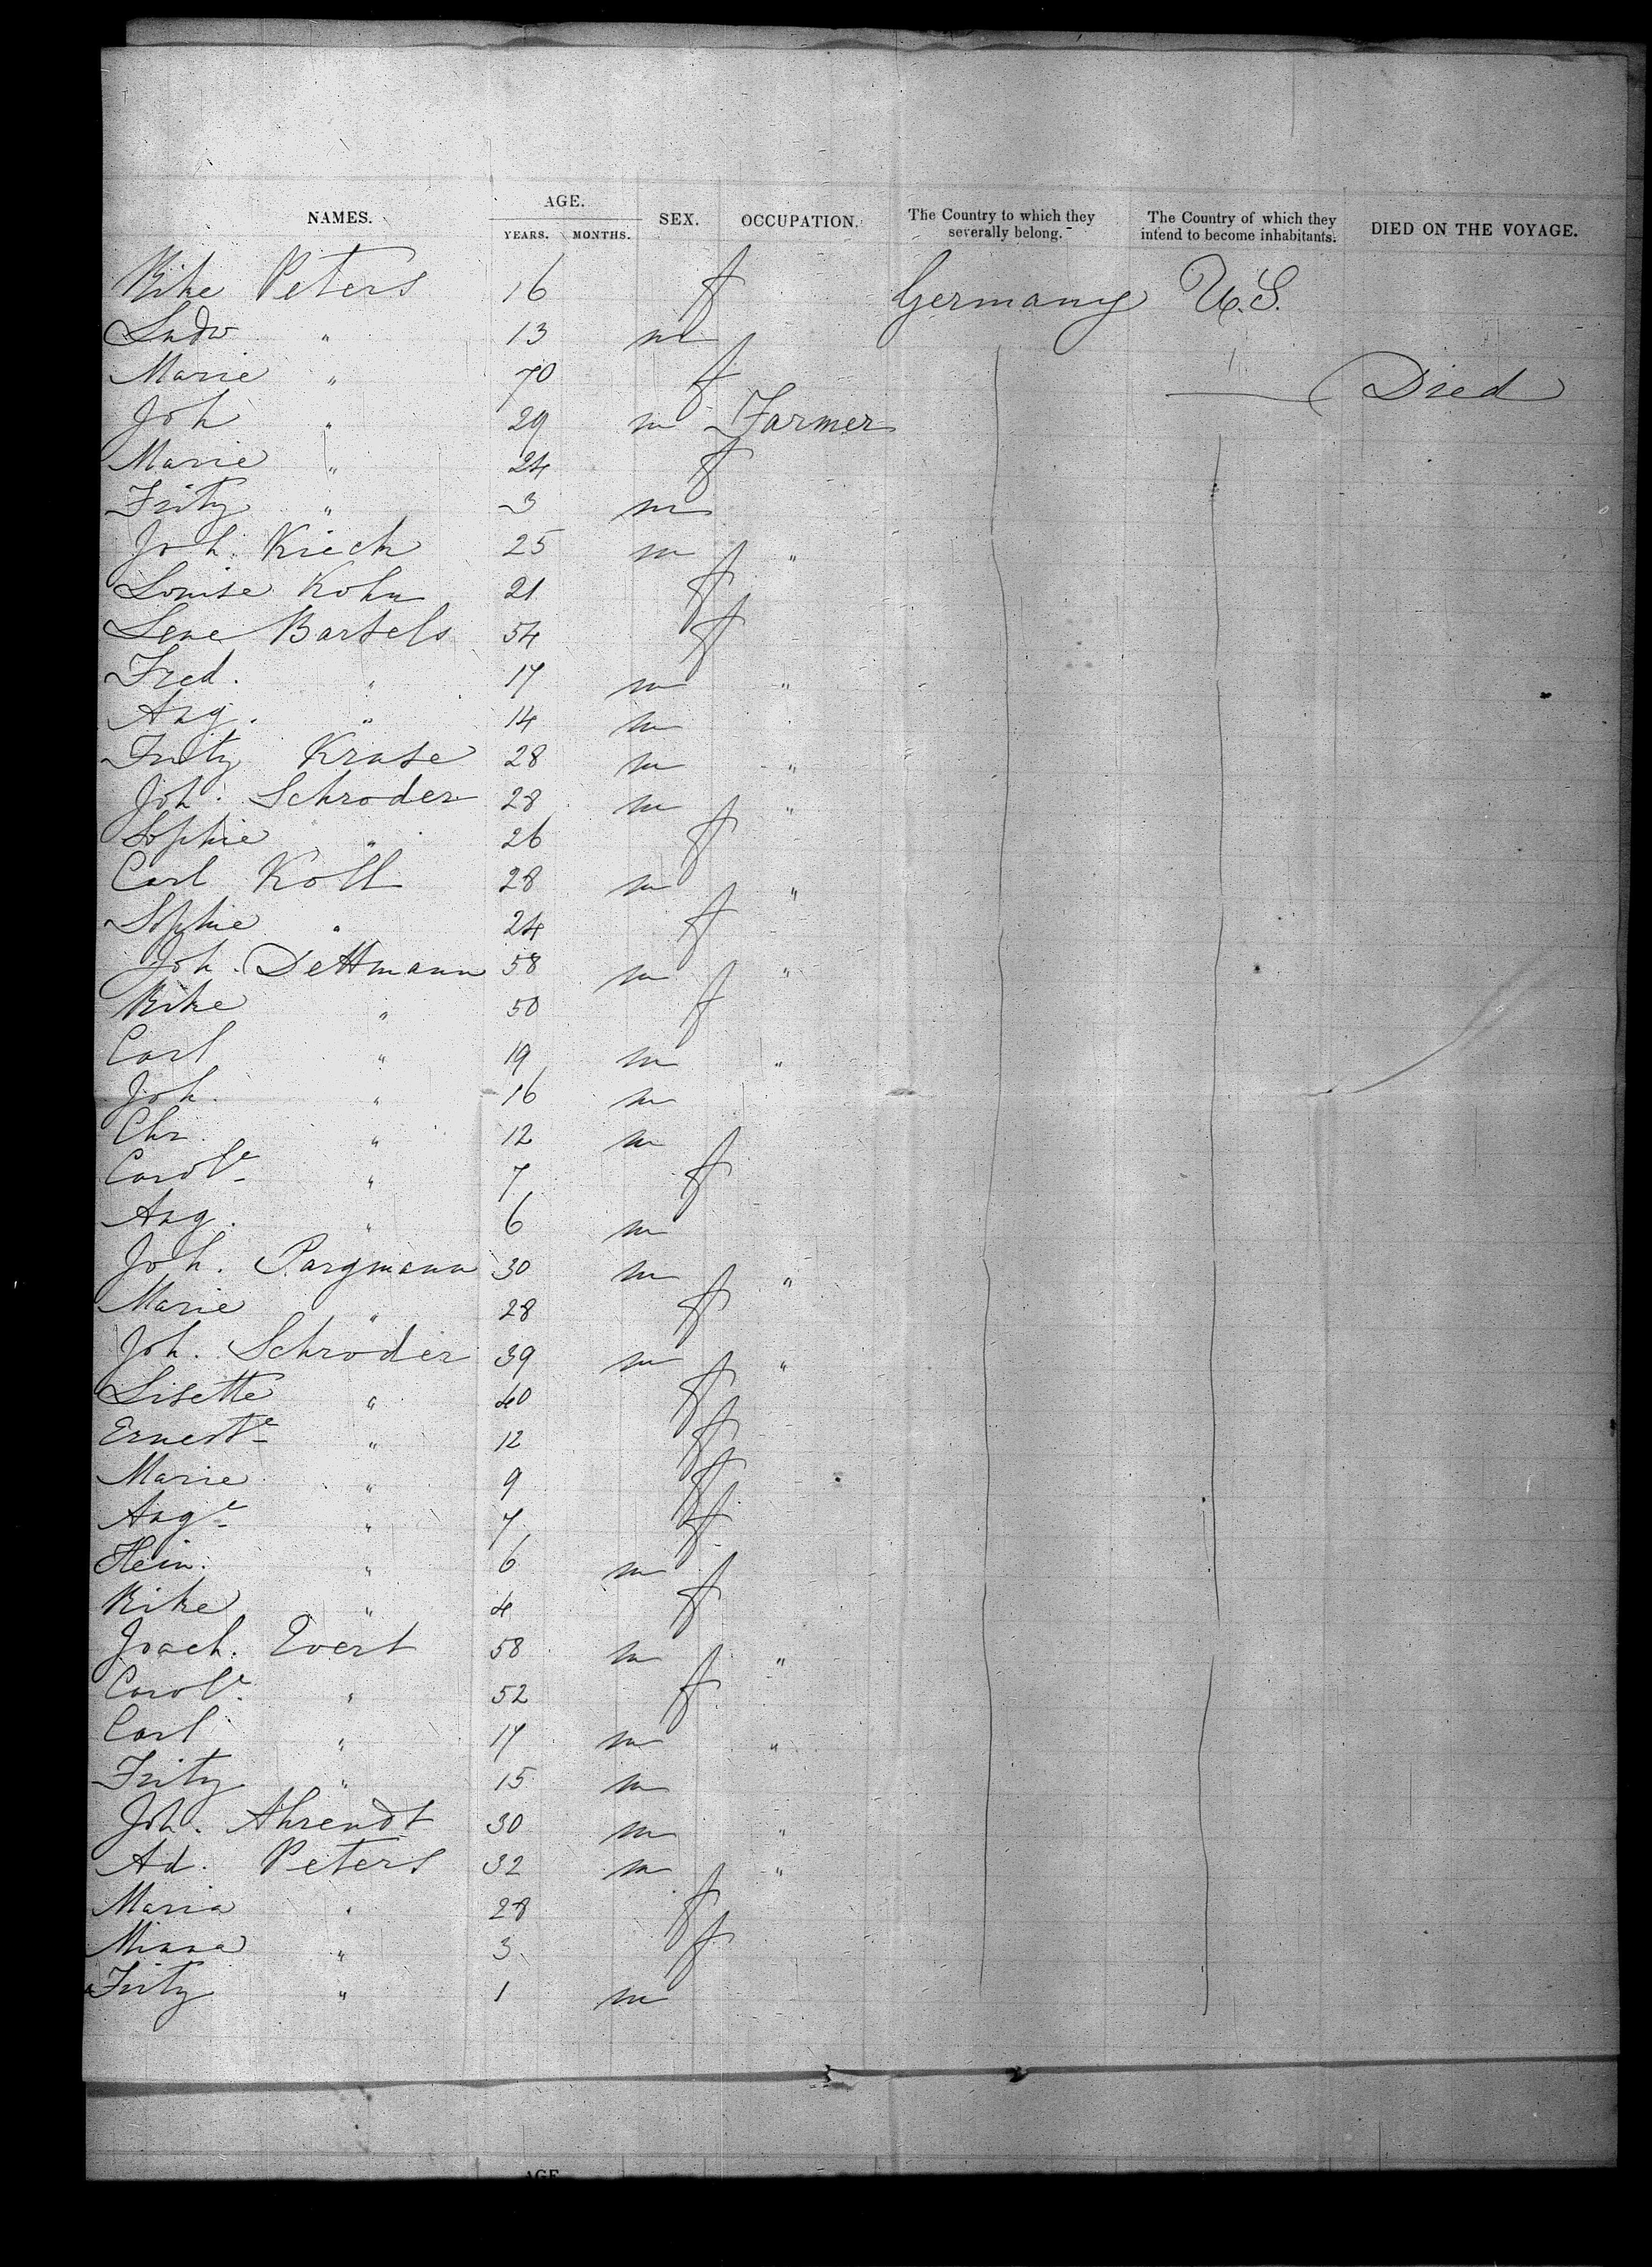 NAMES. AGE. YEARS. MONTHS. SEX. OCCUPATION. The Country to which they severally belong. The Country of which they intend to become inhabitants. DIED ON THE VOYAGE.
Rike Peters 16 f Germany U.S.
Ludw " 13 m
Marie " 70 f Died
Joh " 29 m Farmer
Marie " 24 f
Fritz " 3 m
Joh. Kieck 25 m "
Louise Kohn 21 f
Lene Bartels 54 f
Fred. " 17 m "
Aug. " 14 m
Fritz Kruse 28 m "
Joh. Schroder 28 m "
Sophie " 26 f
Carl Koll 28 m "
Sophie " 24 f
Joh. Dettmann 58 m "
Rike " 50 f
Carl " 19 m "
Joh. " 16 m
Chr. " 12 m
Carole " 7 f
Aug. " 6 m
Joh. Pargmann 30 m "
Marie " 28 f
Joh. Schroder 39 m "
Lisette " 40 f
Erneste " 12 f
Marie " 9 f
Auge " 7 f
Hein. " 6 m
Rike " 4 f
Joach. Evert 58 m "
Carole " 52 f
Carl " 17 m "
Fritz " 15 m
Joh. Ahrendt 30 m "
Ad. Peters 32 m "
Maria " 28 f
Minna " 3 f
Fritz " 1 m
AGE